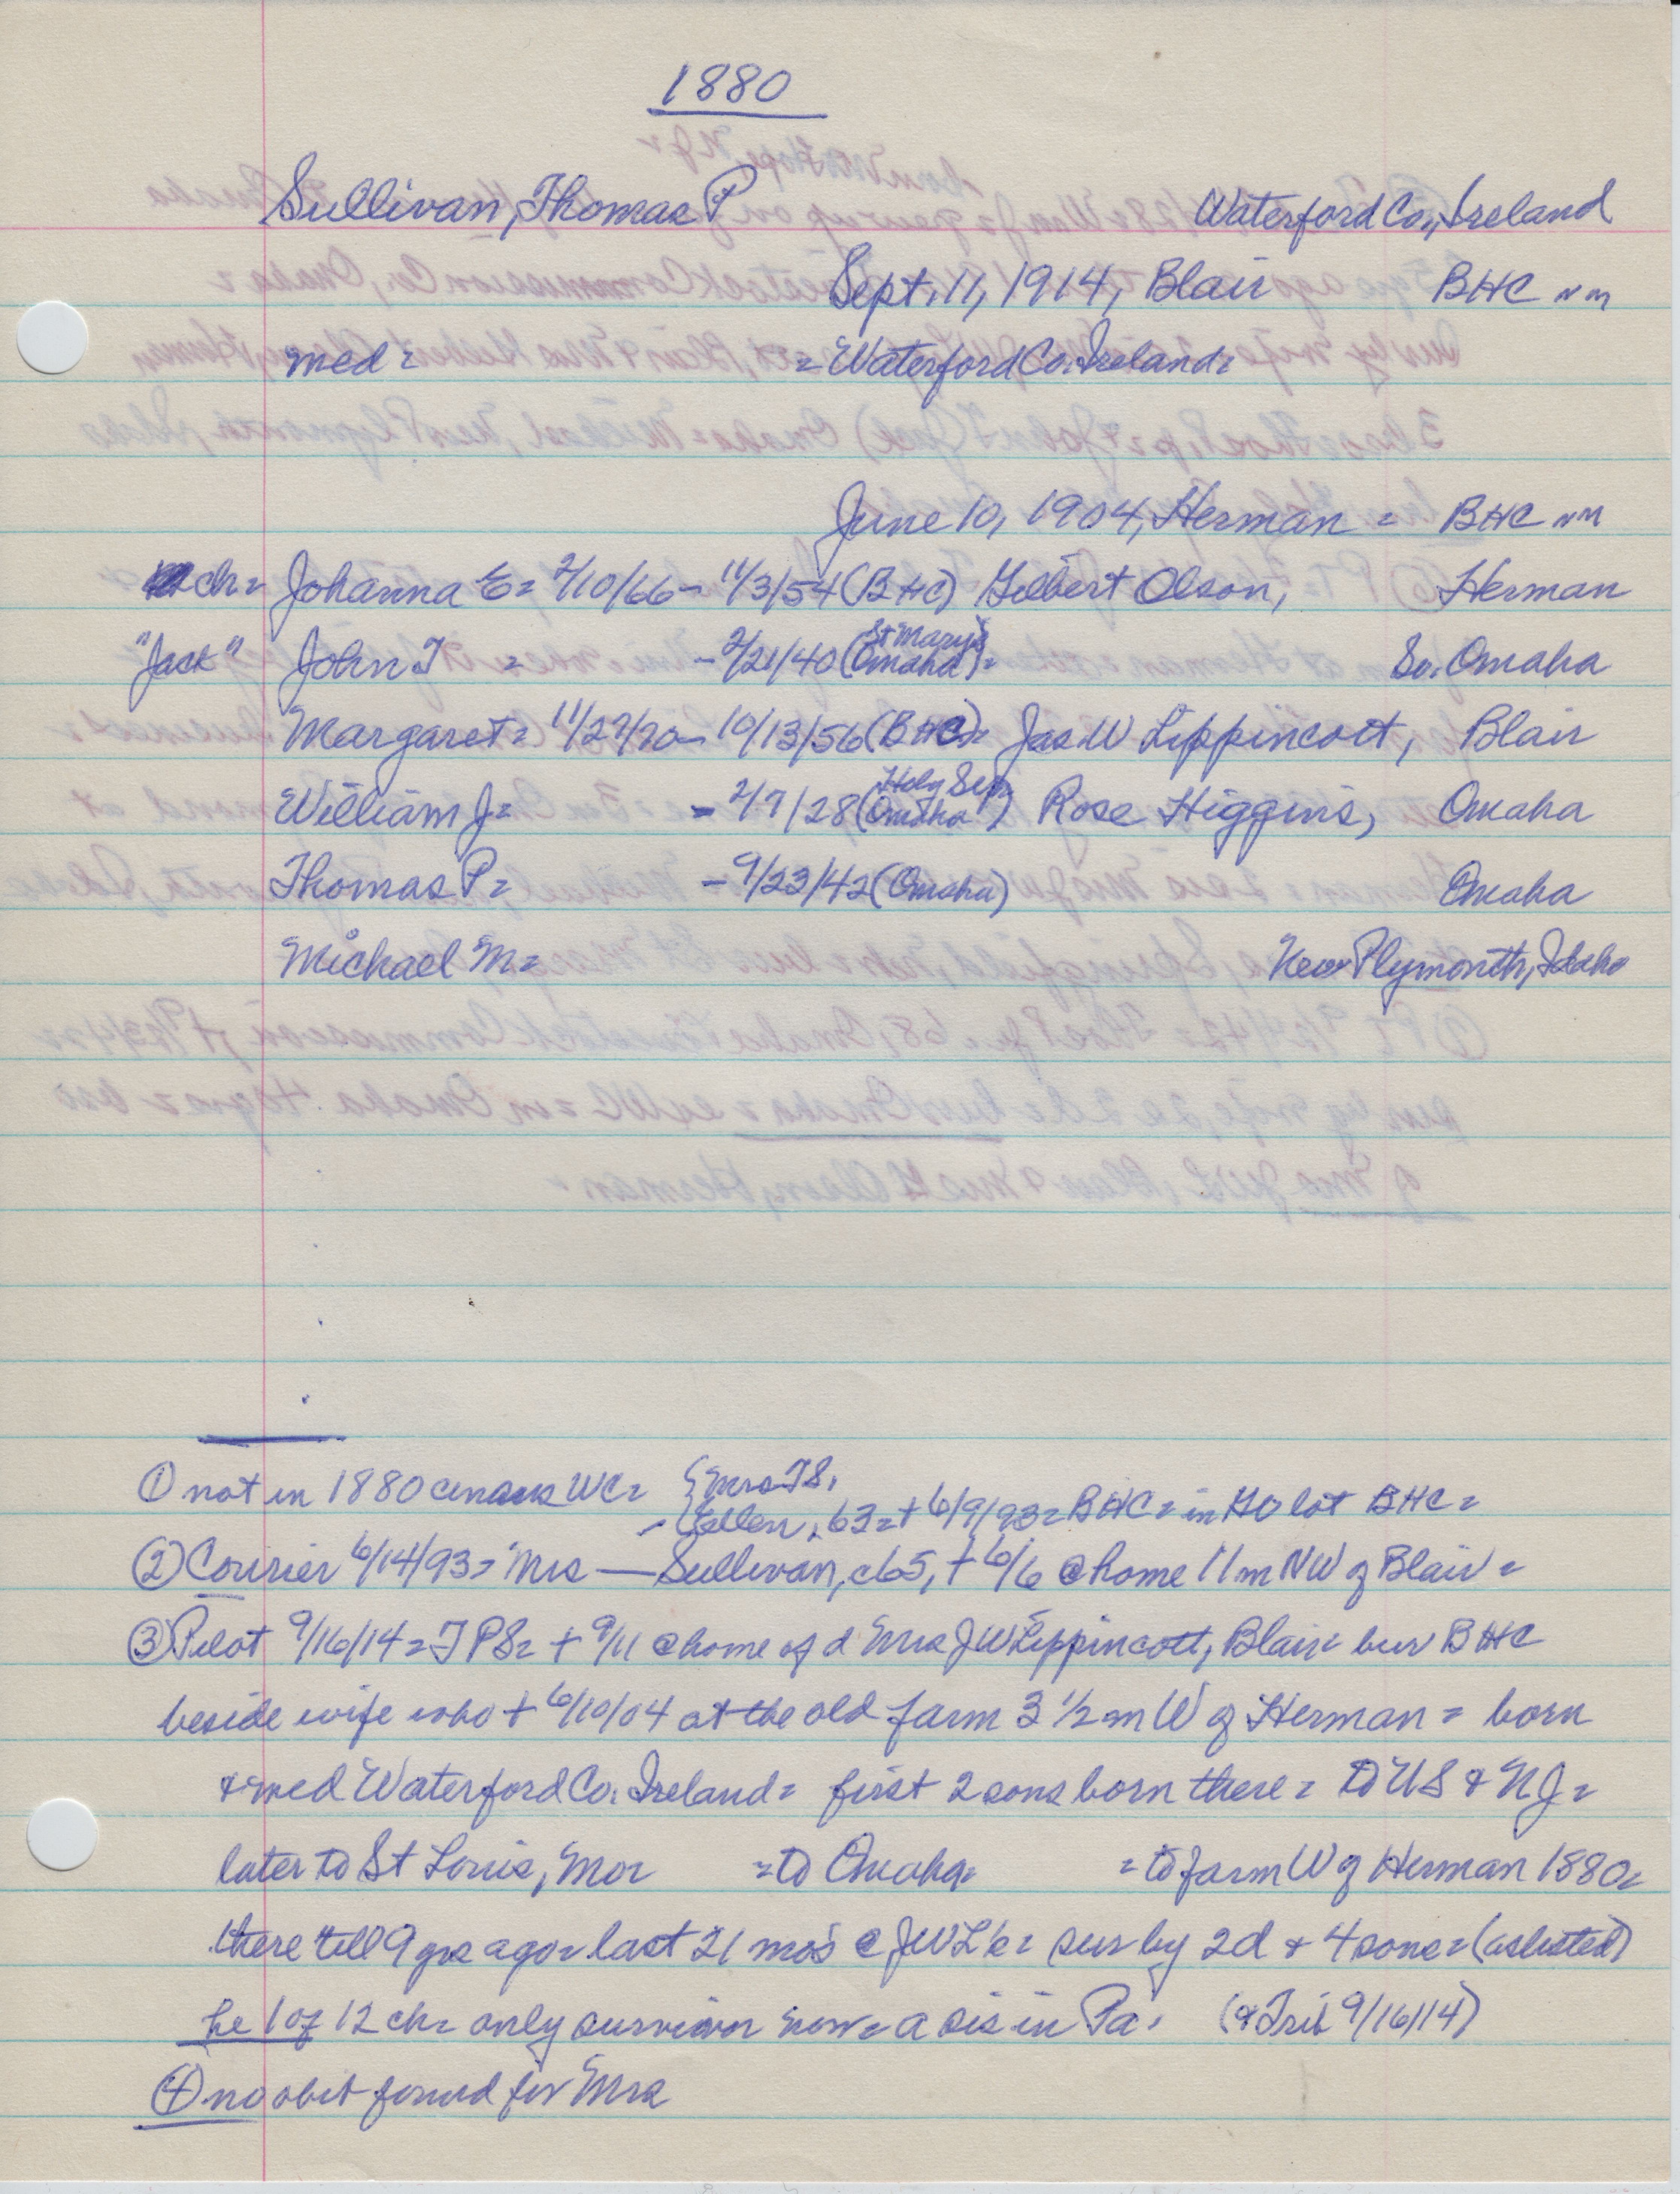 1880
Sullivan, Thomas P Waterford Co., Ireland
Sept. 11, 1914, Blair BHC NM
med = = Waterford Co. Ireland =
June 10, 1904, Herman = BHC NM
ch = Johanna E = 2/10/66 - 11/3/54 (BHC) Gilbert Olson, Herman
"Jack" John T = - 2/21/40 (St Marys Omaha) = So. Omaha
Margaret = 11/27/70 - 10/13/56 (BHC) = Jas. W Lippincott, Blair
William J = - 2/7/28 (Holy Sep Omaha) Rose Higgins, Omaha
Thomas P = - 9/23/42 (Omaha) Omaha
Michael M = New Plymouth, Idaho
① not in 1880 census WC = { Mrs TS,
- (Ellen, 63 = + 6/9/93 = BHC = in GO lot BHC =
② Courier 6/14/93 = Mrs — Sullivan, c65, + 6/6 @ home 11 m NW of Blair =
③ Pilot 9/16/14 = TPS = + 9/11 @ home of d Mrs JW Lippincott, Blair = bur BHC
beside wife who + 6/10/04 at the old farm 3 1/2 m W of Herman = born
& med Waterford Co. Ireland = first 2 sons born there = to US & NJ =
later to St Louis, Mo = = to Omaha = = to farm W of Herman 1880 =
there till 9 yrs ago = last 21 mos @ JWL's = sur by 2d & 4 sons = (as listed)
he 1 of 12 ch = only survivor now = a sis in Pa. (& Trib 9/16/14)
④ no obit found for Mrs